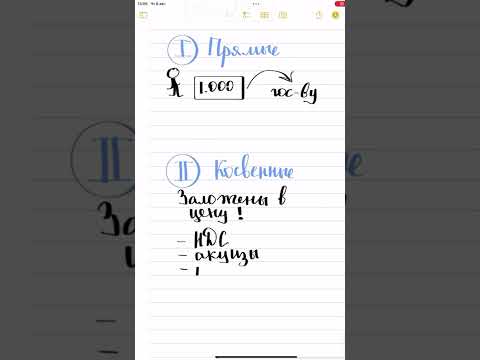 I Прямые
1.000 гос-ву
II Косвенные
Заложены в
цену!
- НДС
- акцизы
-